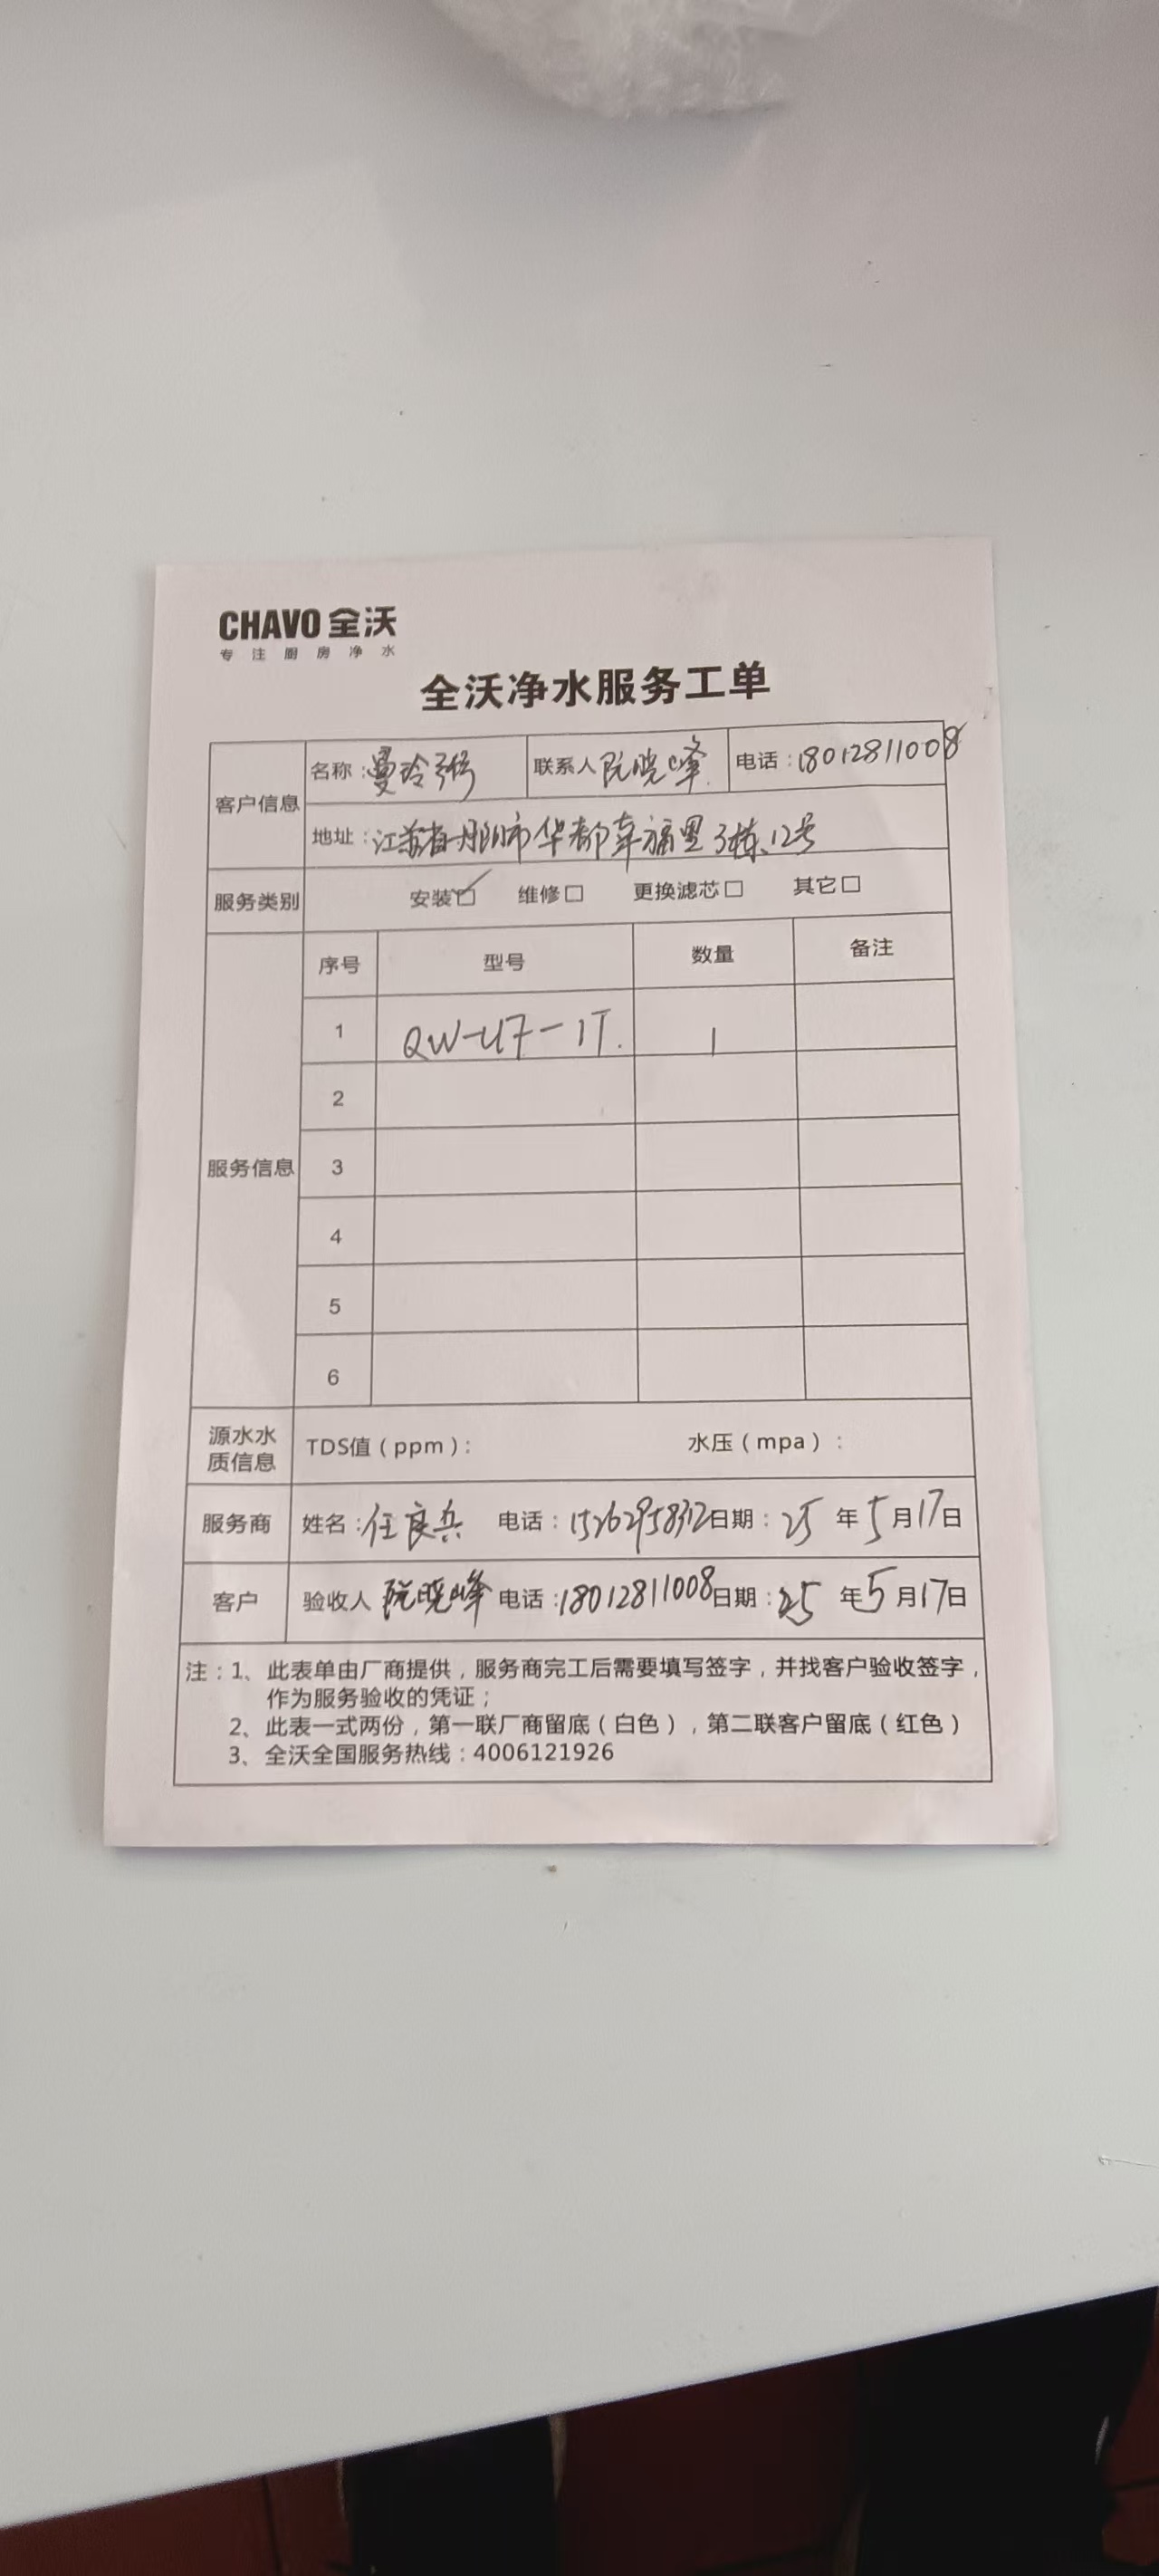 CHAVO 全沃
专注厨房净水
全沃净水服务工单
客户信息 名称：曼玲粥 联系人 阮晓峰 电话：18012811008
地址：江苏省丹阳市华都幸福里3栋、12号
服务类别 安装☑ 维修□ 更换滤芯□ 其它□
服务信息 序号 型号 数量 备注
1 QW-U7-1T. 1
2
3
4
5
6
源水水质信息 TDS值（ppm）： 水压（mpa）：
服务商 姓名：任良兵 电话：15262958312 日期：25 年 5 月 17 日
客户 验收人 阮晓峰 电话：18012811008 日期：25 年 5 月 17 日
注：1、此表单由厂商提供，服务商完工后需要填写签字，并找客户验收签字，
作为服务验收的凭证；
2、此表一式两份，第一联厂商留底（白色），第二联客户留底（红色）
3、全沃全国服务热线：4006121926